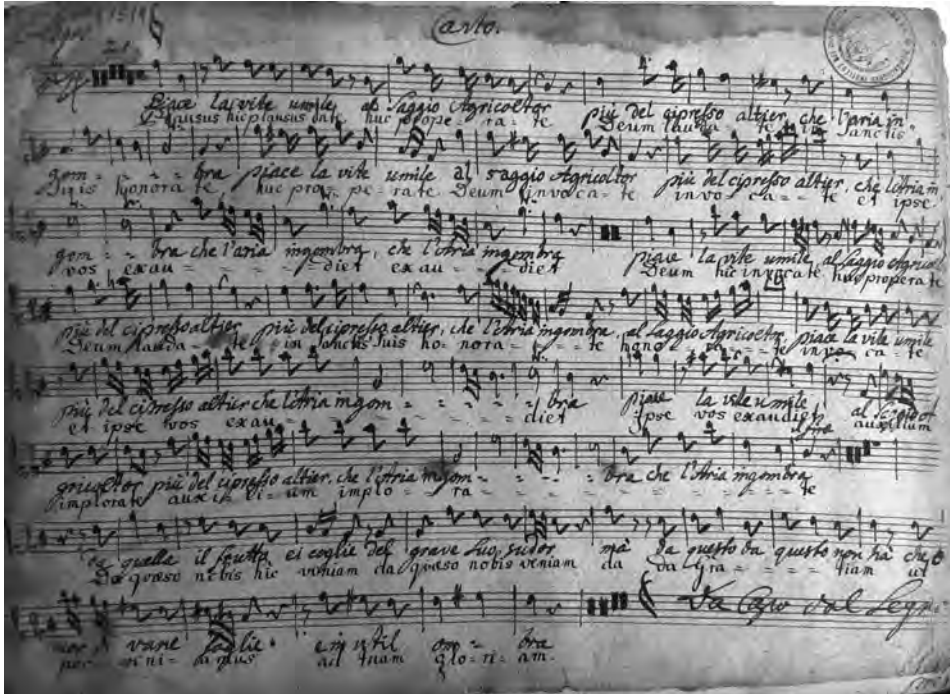 Canto.
21
Piace la vite umile al saggio Agricoltor più del cipresso altier, che l'aria in
Plausus hic plausus date, huc prope = ra = te Deum lauda = te in Sanctis
gom = = = bra piace la vite umile al saggio Agricoltor più del cipresso altier, che l'Aria in
Suis honora te, huc prop. pe = rate Deum invoca = te invo ca = = te et ipse
gom = = bra che l'aria ingombra, che l'Aria ingombra piace la vite umile al saggio Agricol
vos exau = = = = = diet exau = = = diet Deum hic invocate huc properate
più del cipresso altier più del cipresso altier, che l'Aria ingombra, al saggio Agricoltor piace la vite umile
Deum lauda = te in Sanctis Suis ho = nora = = = = te hono = ra = = te invo = ca = te
più del cipresso altier che l'Aria ingom = = = = = = bra piace la vite umile al saggio
et ipse vos exau = = = = diet Ipse vos exaudiet auxilium
gricoltor più del cipresso altier, che l'Aria ingom = = = = bra che l'Aria ingombra
implorate auxi = li = um implo = ra = = = = = = = = te
da quella il frutto ei coglie del grave suo sudor mà da questo da questo non hà che
Da quæso nobis hic veniam da quæso nobis veniam da da Gra = = = = tiam ut
vane foglie e inutil om = bra
ad tuam glo = ri = am.
Da Capo dal Segno